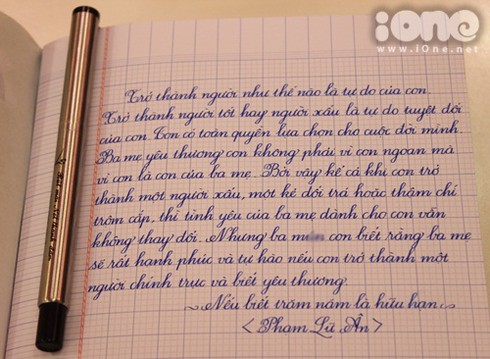 iOne
www.iOne.net
Trở thành người như thế nào là tự do của con.
Trở thành người tốt hay người xấu là tự do tuyệt đối
của con. Con có toàn quyền lựa chọn cho cuộc đời mình.
Ba mẹ yêu thương con không phải vì con ngoan mà
vì con là con của ba mẹ. Bởi vậy kể cả khi con trở
thành một người xấu, một kẻ dối trá hoặc thậm chí
trộm cắp, thì tình yêu của ba mẹ dành cho con vẫn
không thay đổi. Nhưng ba con biết rằng ba mẹ
sẽ rất hạnh phúc và tự hào nếu con trở thành một
người chính trực và biết yêu thương.
~Nếu biết trăm năm là hữu hạn~
< Phạm Lữ Ân >